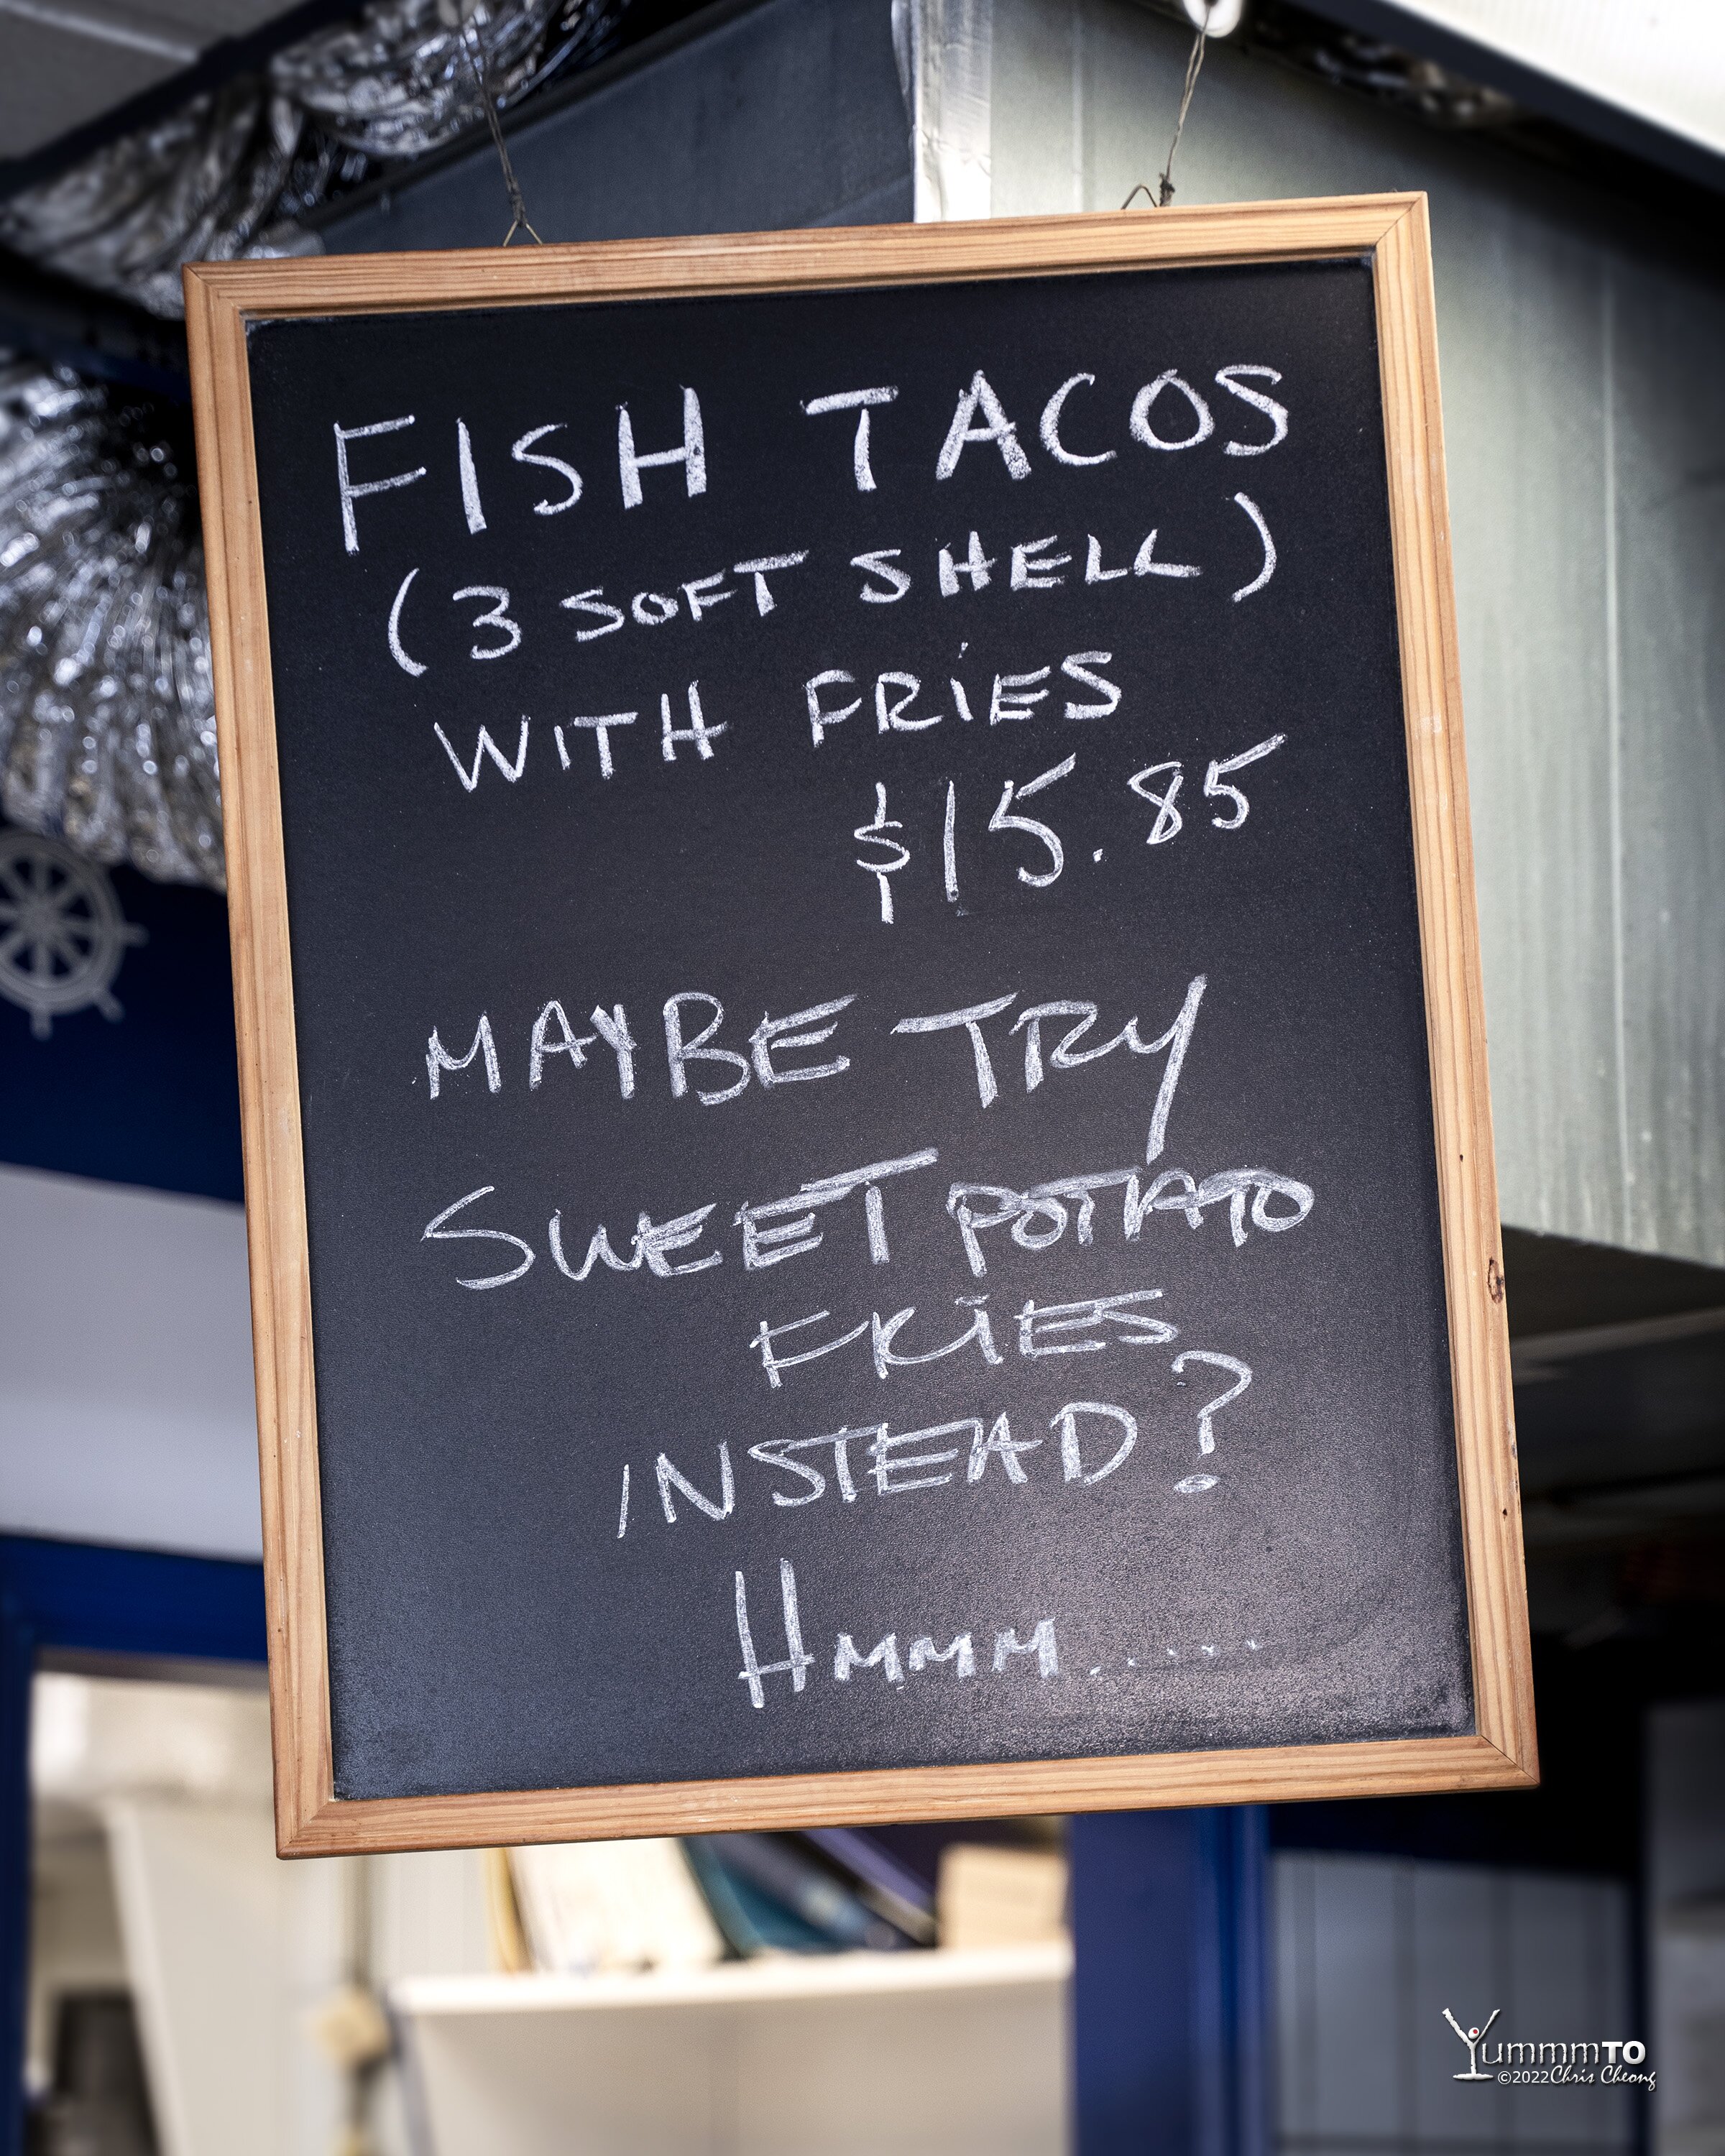 FISH TACOS
(3 SOFT SHELL)
WITH FRiES
$15.85
MAYBE TRY
SWEET POTATO
FRiES
INSTEAD?
HMMM.....
YummmTO
©2022Chris Cheong